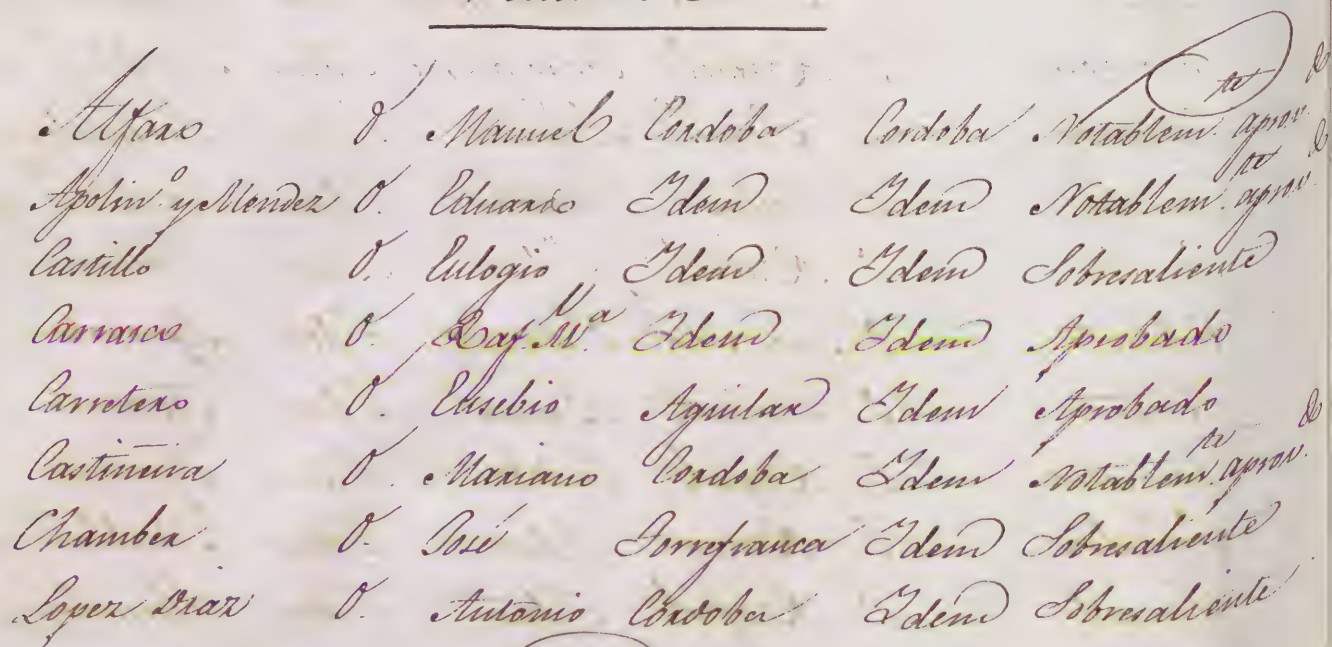 Alfaro D. Manuel Cordoba Cordoba Notablem.te aprov.do
Apolin.o y Mendez D. Eduardo Idem Idem Notablem.te aprov.do
Castillo D. Eulogio Idem Idem Sobresaliente
Carrasco D. Raf. M.a Idem Idem Aprobado
Carretero D. Eusebio Aguilar Idem Aprobado
Castineira D. Mariano Cordoba Idem Notablem.te aprov.do
Chamber D. José Torrefranca Idem Sobresaliente
Lopez Diaz D. Antonio Cordoba Idem Sobresaliente